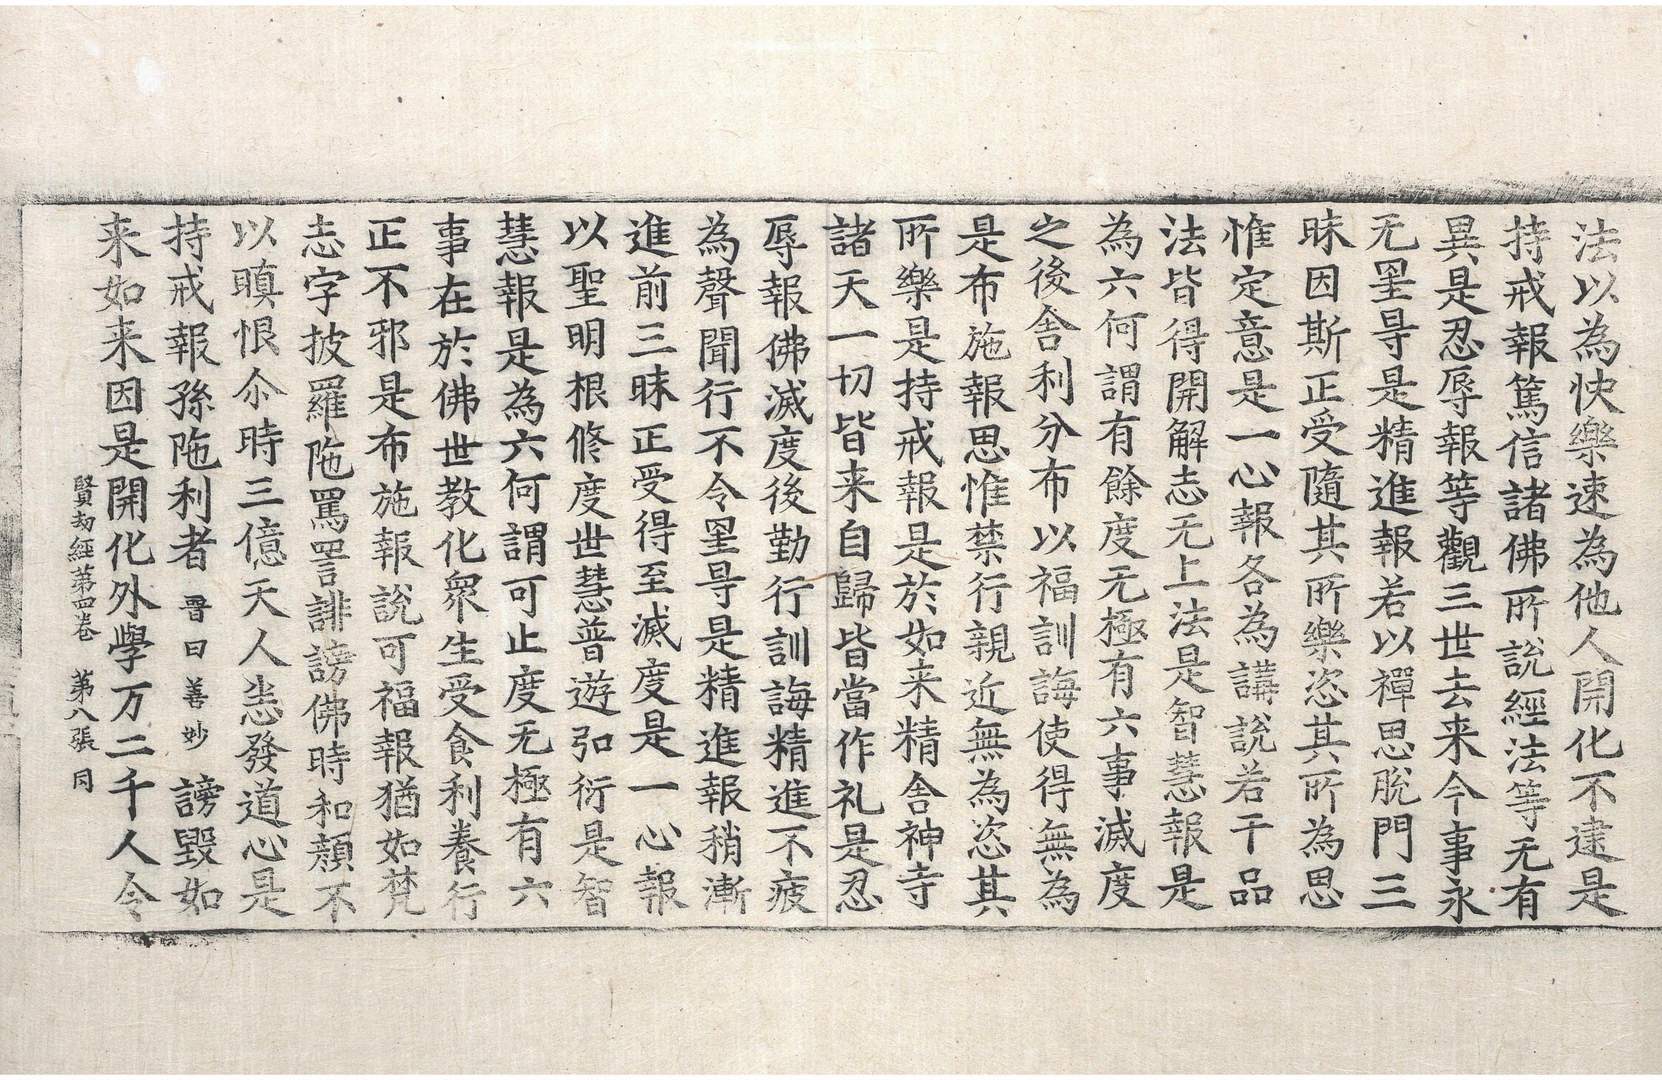 法以為快樂速為他人開化不逮是
持戒報篤信諸佛所說經法等无有
異是忍辱報等觀三世去来今事永
无罣㝵是精進報若以禪思脫門三
昧因斯正受隨其所樂恣其所為思
惟定意是一心報各為講說若干品
法皆得開解志无上法是智慧報是
為六何謂有餘度无極有六事滅度
之後舍利分布以福訓誨使得無為
是布施報思惟禁行親近無為恣其
所樂是持戒報是於如来精舍神寺
諸天一切皆来自歸皆當作礼是忍
辱報佛滅度後勤行訓誨精進不疲
為聲聞行不令罣㝵是精進報稍漸
進前三昧正受得至滅度是一心報
以聖明根修度世慧普遊弘衍是智
慧報是為六何謂可止度无極有六
事在於佛世教化衆生受食利養行
正不邪是布施報說可福報猶如梵
志字披羅陁罵詈誹謗佛時和顏不
以瞋恨尒時三億天人悉發道心是
持戒報孫陁利者 晉曰善妙 謗毀如
来如来因是開化外學万二千人令
賢劫經第四卷 第八張 同